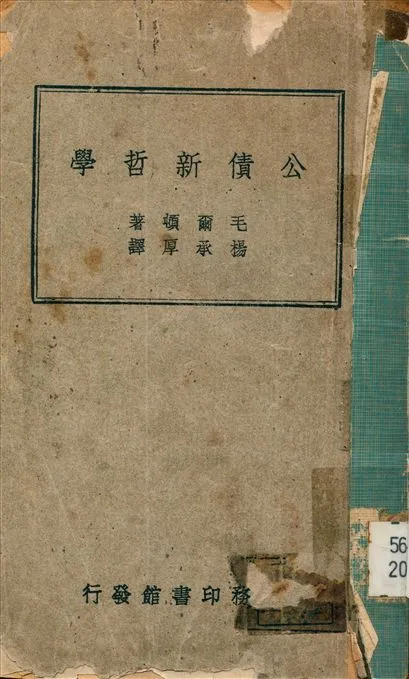 公債新哲學
毛爾頓著
楊承厚譯
務印書館發行
56
20